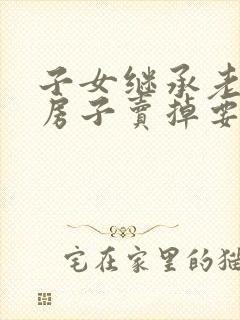 子女继承老
房子卖掉要
宅在家里的猫